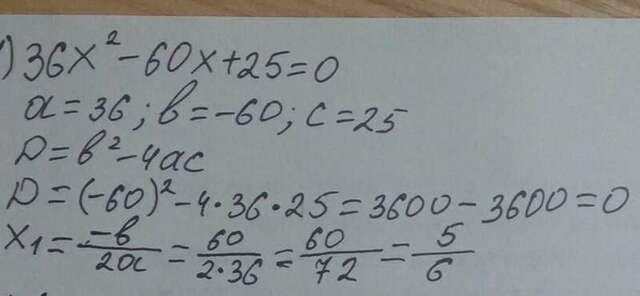 ) 36x² - 60x + 25 = 0
a = 36; b = -60; c = 25
D = b² - 4ac
D = (-60)² - 4·36·25 = 3600 - 3600 = 0
x₁ = -b/2a = 60/2·36 = 60/72 = 5/6